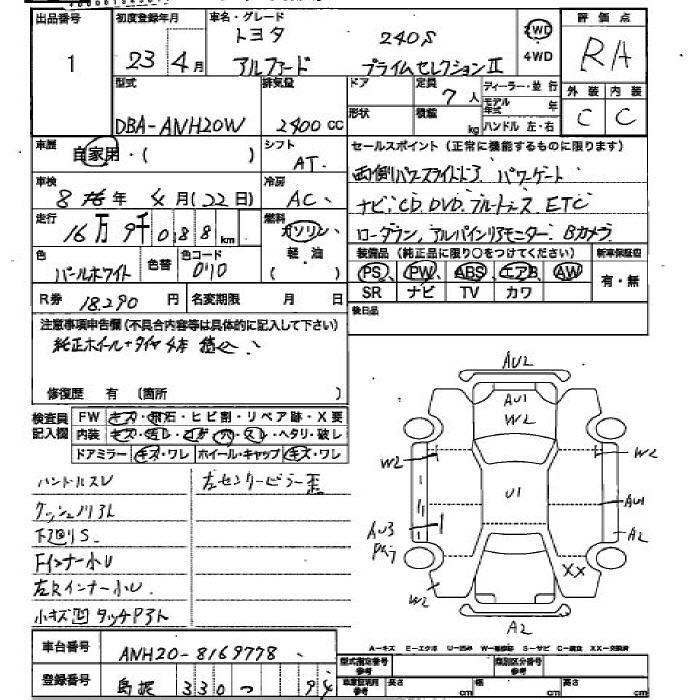 出品番号 初度登録年月 車名・グレード 2WD 評価点
1 23 4月 トヨタ 240S 4WD RA
アルファード プライムセレクションⅡ
型式 排気量 ドア 定員 7人 ディーラー・並行 外装 内装
DBA-ANH20W 2400 CC 形状 積載 kg モデル年式 年 C C
ハンドル 左・右
車歴 自家用・( ) シフト AT セールスポイント(正常に機能するものに限ります)
両側パワースライドドア パワーゲート
車検 年 4月(22日) 冷房 AC ナビ.CD.DVD.フルセグ ETC
走行 16万9千088km 燃料 ガソリン・軽油( ) ローダウン アルパインリアモニター Bカメラ
色 パールホワイト 色替 色コード 070 装備品(純正品に限り○をつけてください) 新車保証書
PS PW ABS エアB AW 有・無
R券 18.290円 名変期限 月 日 SR ナビ TV カワ
後日品
注意事項申告欄(不具合内容等は具体的に記入して下さい)
純正ホイール+タイヤ4本
修復歴 有 (箇所 )
検査員記入欄 FW キズ・飛石・ヒビ割・リペア跡・X要
内装 キズ・汚レ・コゲ・穴・スレ・ヘタリ・破レ
ドアミラー キズ・ワレ ホイール・キャップ キズ・ワレ
ハンドルスレ 左センターピラー歪
クッション小スレ
下廻りS
Fインナー小U
左Rインナー小U
小キズ凹 タッチP3ト
AU2
AU1
W2
W2 W2
U1
AU1
AU3 A2
W2 XX
A2
A-キズ E-エクボ U-凹み W-補修跡 S-サビ C-腐食 XX-交換済
車台番号 ANH20-8169778
型式指定番号 類別区分番号
登録番号 島根 330 つ 94
車体証明長参考 長さ cm 幅 cm 高さ cm